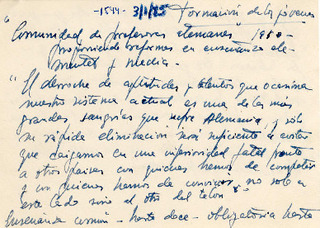 -1544- 3/1/55 Formación de los jóvenes
"Comunidad de profesores alemanes" 1950-
proporciando reformas en enseñanza ele-
mental y media.-
"El derroche de aptitudes y talentos que ocasiona
nuestro sistema actual es una de las más
grandes sangrías que sufre Alemania, y sólo
su rápida eliminación será suficiente a evitar
que caigamos en una inferioridad fatal frente
a otros países con quienes hemos de competir
y con quienes hemos de convivir, no sólo a
este lado sino el otro del telón"
Enseñanza común - hasta doce - obligatoria hasta